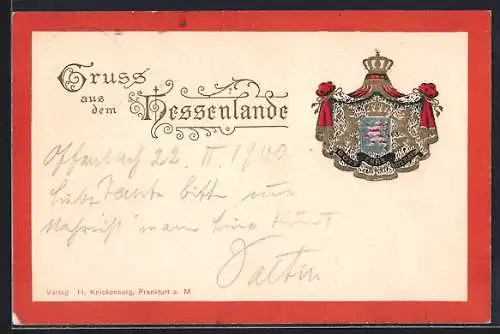 Gruss
aus
dem
Hessenlande
Offenbach 22. II. 1900
liebe Tante bitte nur
Nachricht wann
Verlag H. Knickenberg, Frankfurt a. M